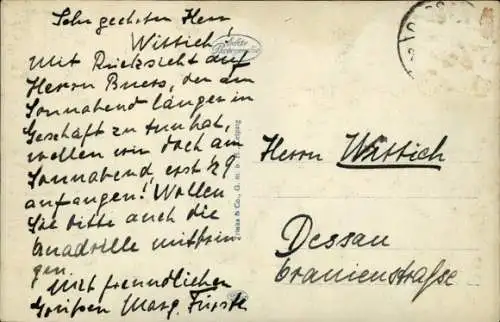 Sehr geehrter Herr
Wittich!
Mit Rücksicht auf
Herrn Buers, der am
Sonnabend länger im
Geschäft zu tun hat,
wollen wir doch am
Sonnabend erst 1/2 9
anfangen! Wollen
Sie bitte auch die
Quadrille mitbrin-
gen.
Mit freundlichen
Grüßen Marg. Fürste
Echte
Photographie
& Co., G. m. b. H., Leipzig
Herrn Wittich
Dessau
Oranienstraße